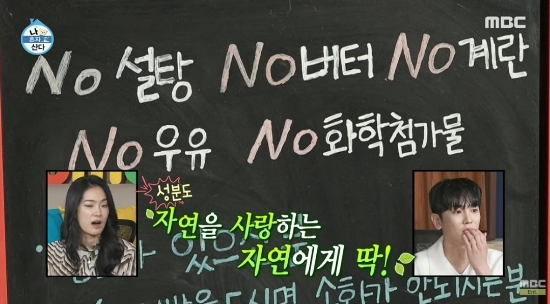 나
혼자
산다
MBC
No 설탕 No버터 No계란
No우유 No화학첨가물
성분도
자연을 사랑하는
자연에게 딱!
있으
드시면 소화가 안되시는분
MBC